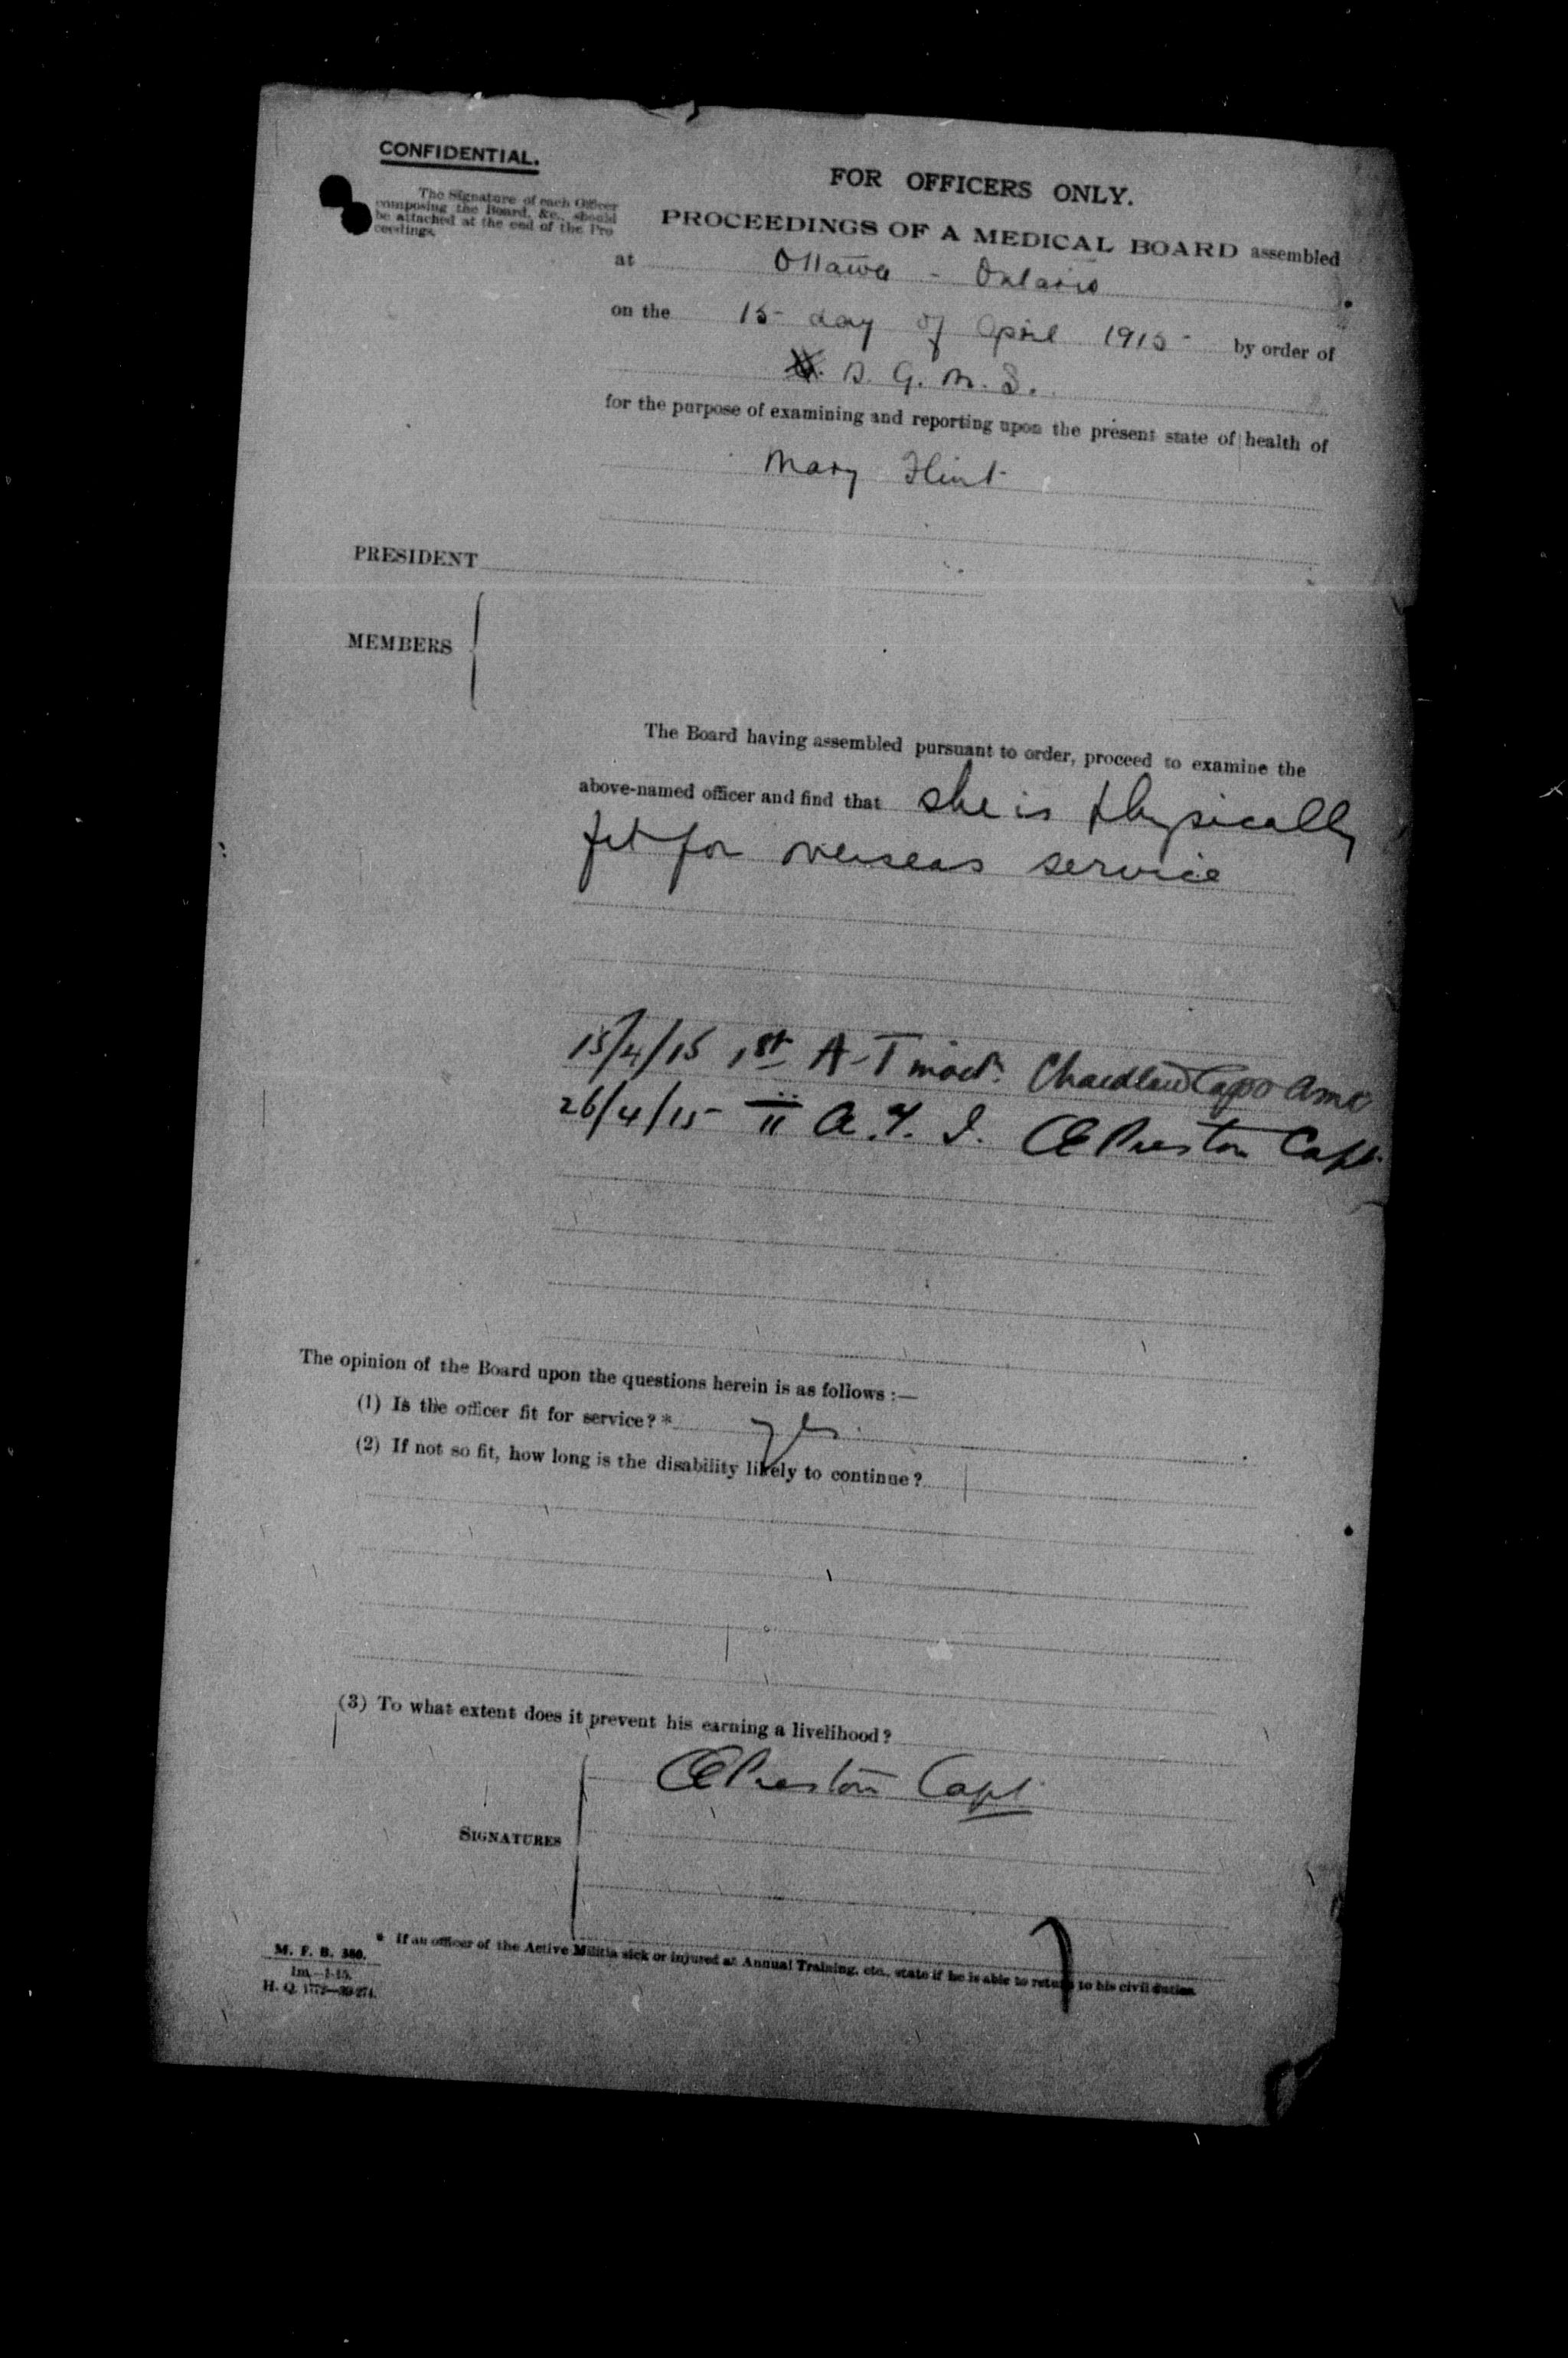 CONFIDENTIAL.
The Signature of each Officer
composing the Board, &c., should
be attached at the end of the Pro
ceedings.
FOR OFFICERS ONLY.
PROCEEDINGS OF A MEDICAL BOARD assembled
at Ottawa - Ontario
on the 15 day of April 1915 by order of
D. G. M. S.
for the purpose of examining and reporting upon the present state of health of
Mary Flint
PRESIDENT
MEMBERS
The Board having assembled pursuant to order, proceed to examine the
above-named officer and find that she is physically
fit for overseas service
15/4/15 1st A-T inoct. Capt AMC
26/4/15 II A. T. I. CE Preston Capt.
The opinion of the Board upon the questions herein is as follows :—
(1) Is the officer fit for service? * yes.
(2) If not so fit, how long is the disability likely to continue?
(3) To what extent does it prevent his earning a livelihood?
CE Preston Capt
SIGNATURES
* If an officer of the Active Militia sick or injured at Annual Training, etc., state if he is able to return to his civil duties.
M. F. B. 380.
1m.—1-15.
H. Q. 1772—39-274.